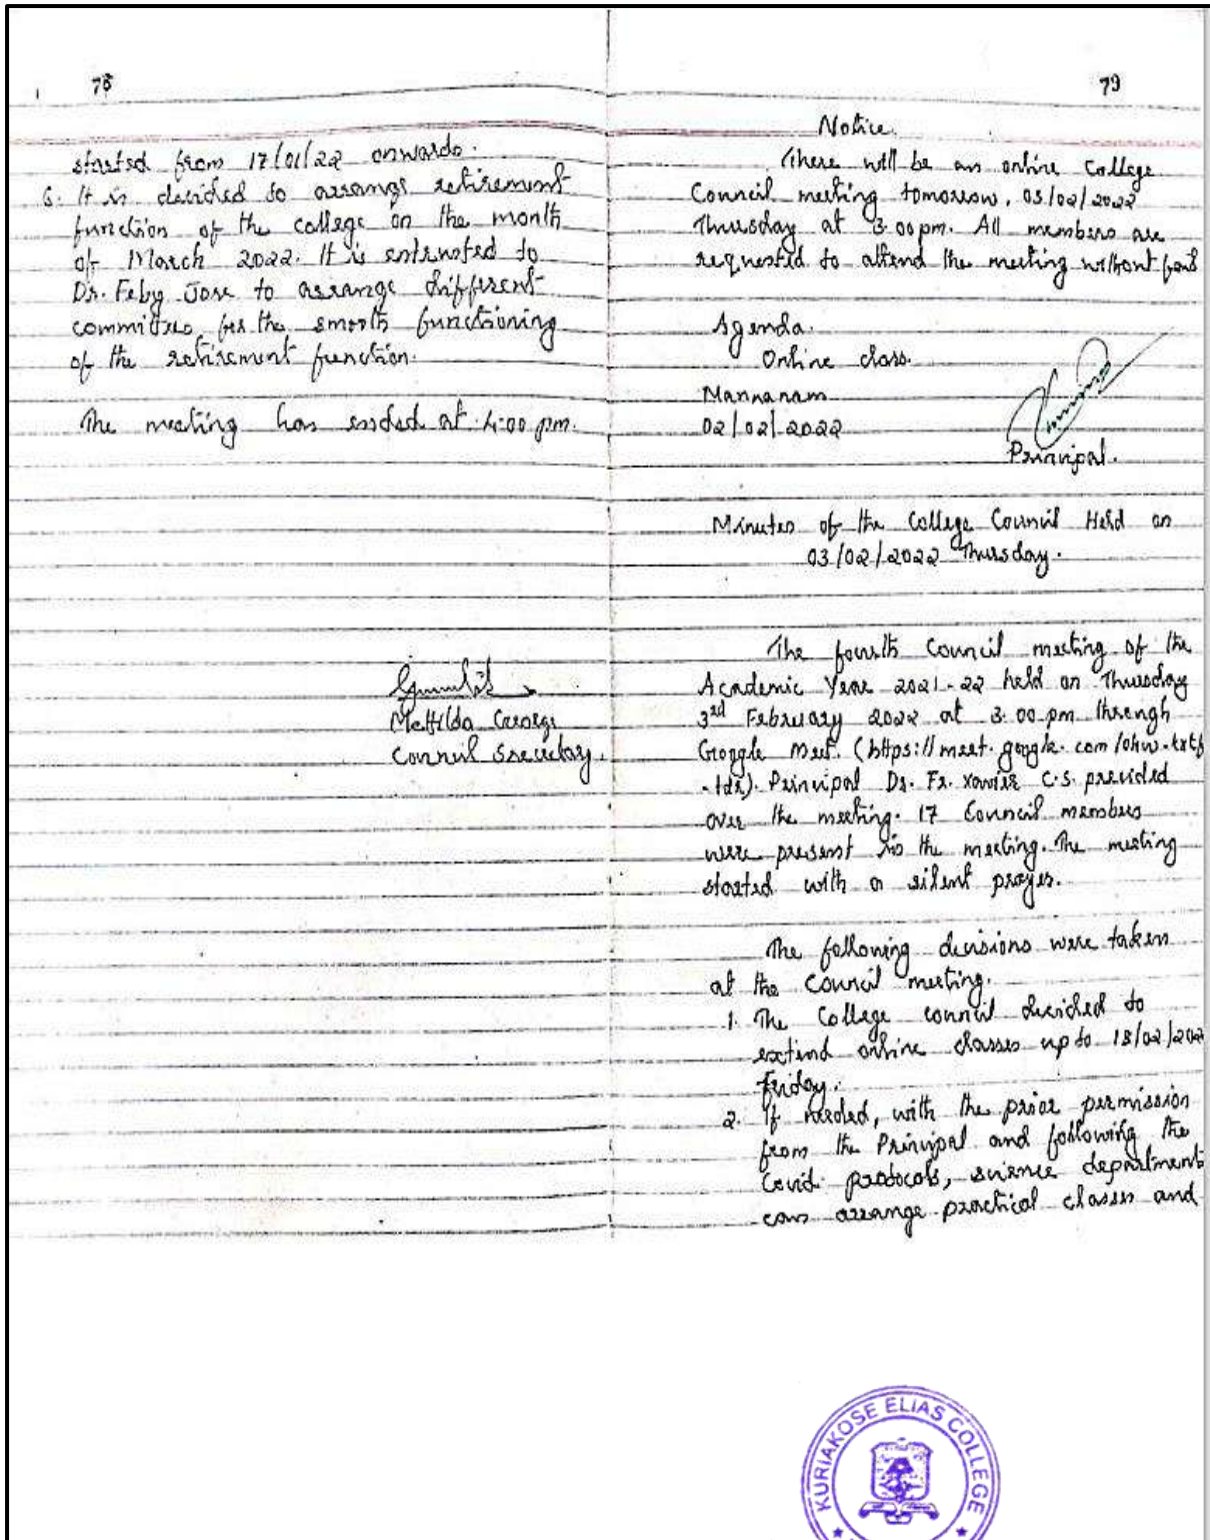 78
started from 17/01/22 onwards.
6. It is decided to arrange retirement
function of the college on the month
of March 2022. It is entrusted to
Dr. Feby Jose to arrange different
committees for the smooth functioning
of the retirement function.
The meeting has ended at 4:00 pm.
Mettilda George
Council Secretary.
79
Notice.
There will be an online College
Council meeting tomorrow, 03/02/2022
Thursday at 3.00pm. All members are
requested to attend the meeting without
Agenda.
Online class.
Mannanam
02/02/2022
Principal.
Minutes of the College Council Held on
03/02/2022 Thursday.
The fourth Council meeting of the
Academic Year 2021-22 held on Thursday
3rd February 2022 at 3.00 pm through
Google Meet. (https://meet.google.com/
Principal Dr. Fr. Xavier C.S. presided
over the meeting. 17 Council members
were present in the meeting. The meeting
started with a silent prayer.
The following decisions were taken
at the Council meeting.
1. The College council decided to
extend online classes up to 18/02/202
Friday.
2. If needed, with the prior permission
from the Principal and following the
Covid protocols, science departments
can arrange practical classes and
KURIAKOSE ELIAS COLLEGE